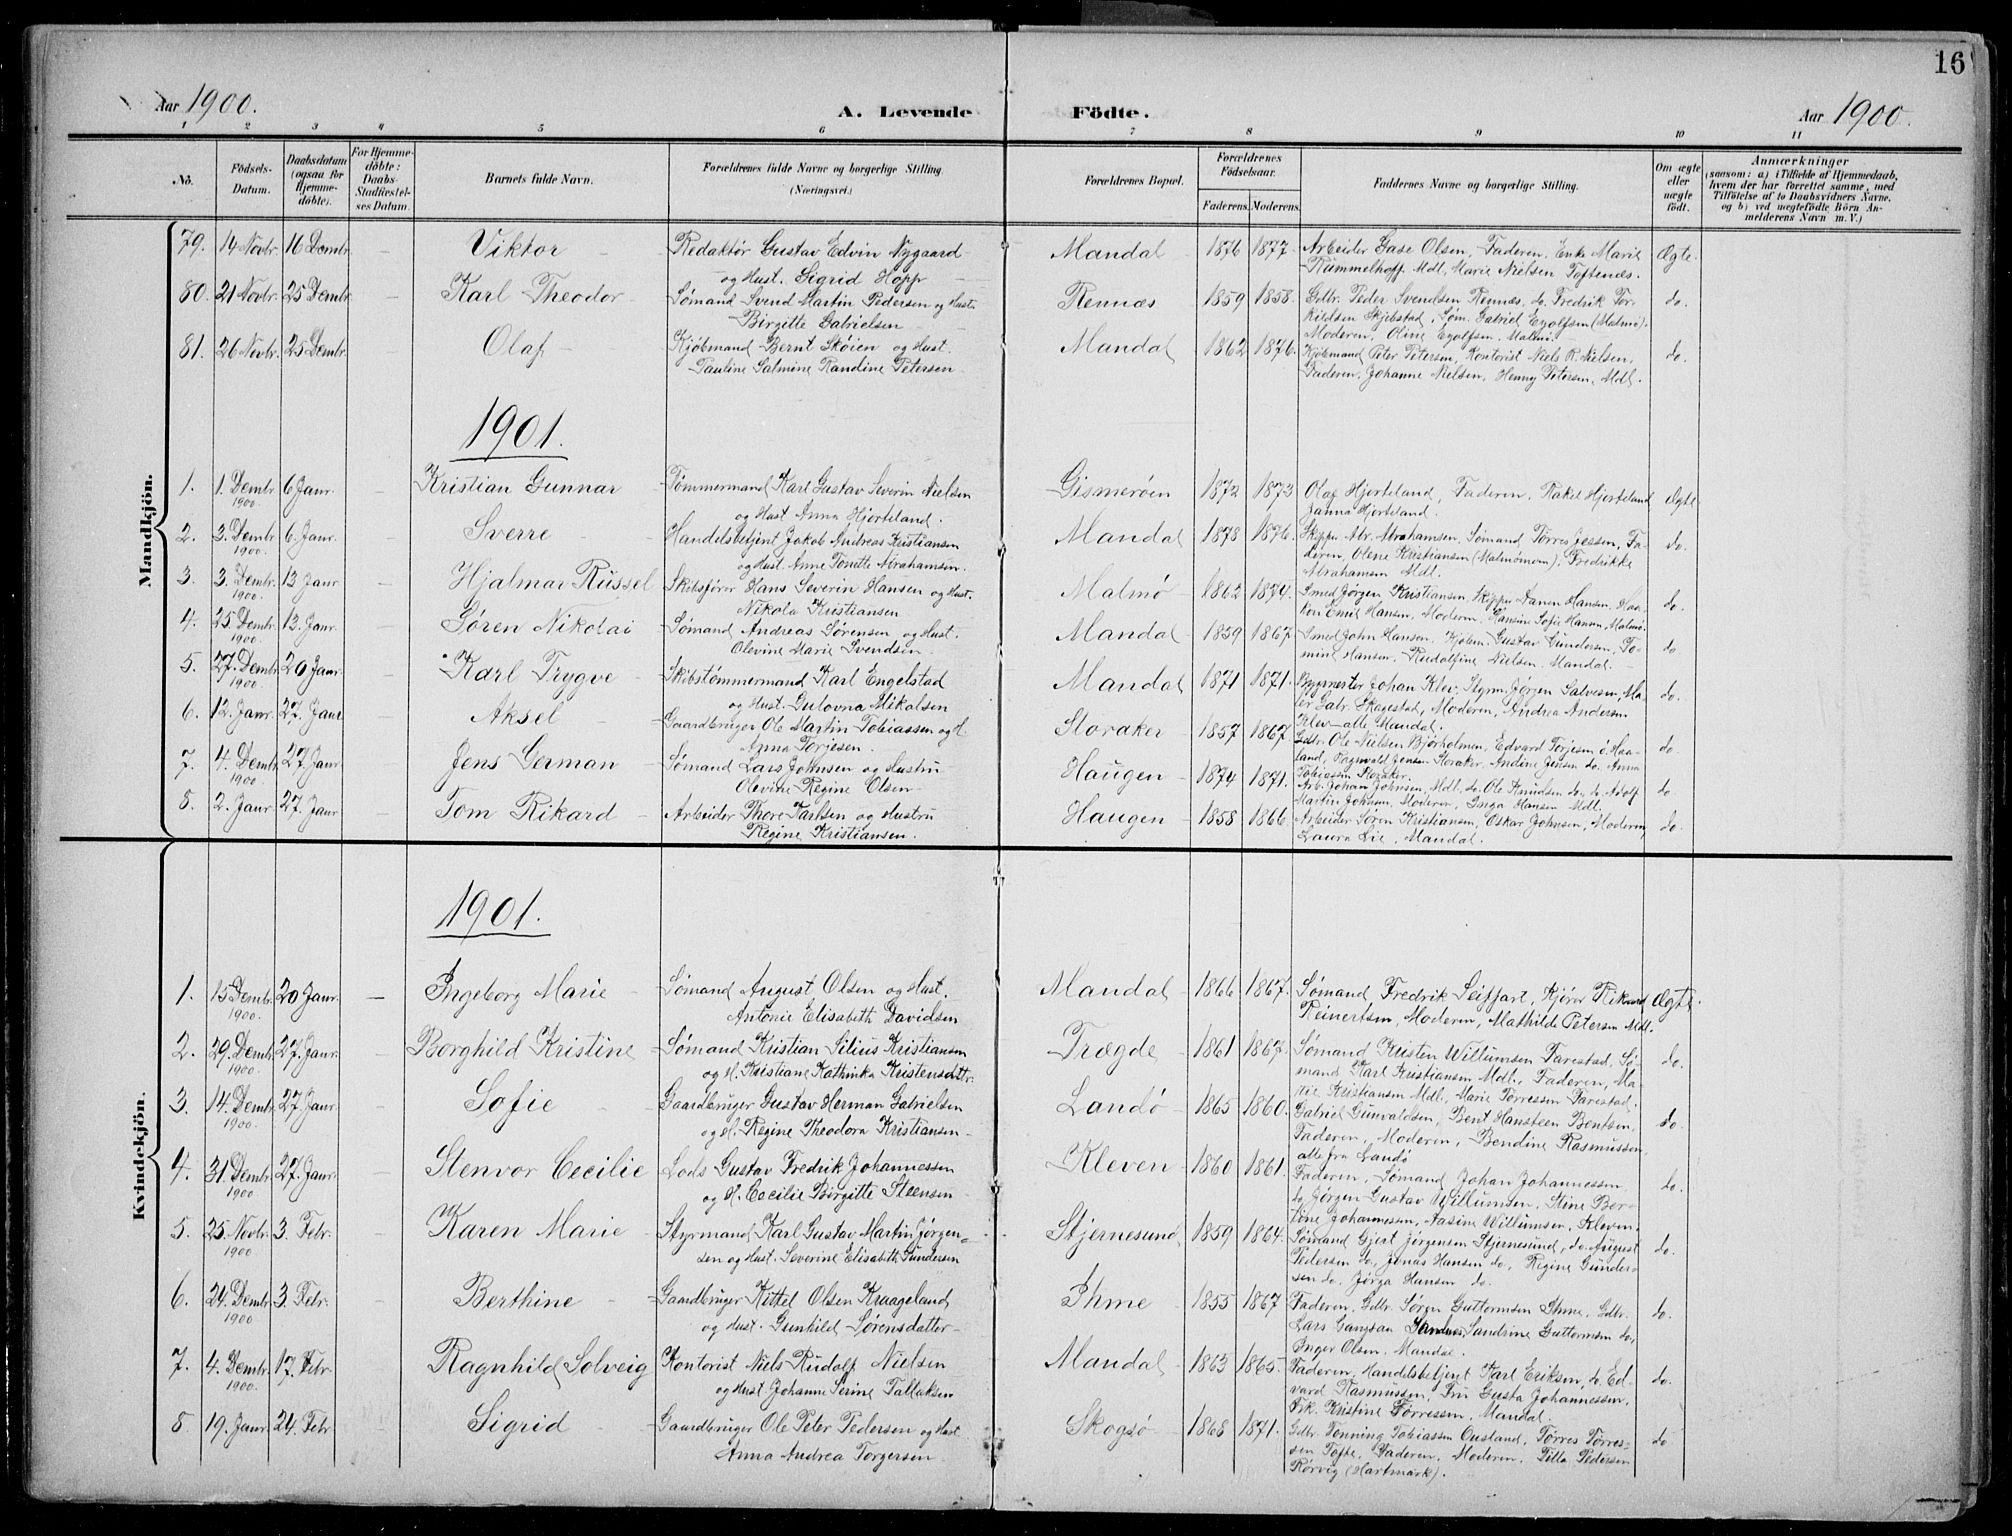 16
Aar 1900. A. Levende Födte. Aar 1900.
1 2 3 4 5 6 7 8 9 10 11
No. Födsels-Datum. Daabsdatum (ogsaa for Hjemme-döbte). For Hjemme-döbte: Daabs-Stadfæstel-ses Datum. Barnets fulde Navn. Forældrenes fulde Navne og borgerlige Stilling. (Næringsvei.) Forældrenes Bopæl. Forældrenes Födselsaar. Faderens. Moderens. Faddernes Navne og borgerlige Stilling. Om ægte eller uægte födt. Anmærkninger (saasom: a) i Tilfælde af Hjemmedaab, hvem der har forrettet samme, med Tilföielse af to Daabsvidners Navne, og b) ved uægtefödte Börn Anmelderens Navn m. V.)
Mandkjön.
79. 14 Novbr. 16 Dembr. Viktor Redaktør Gustav Edvin Nygaard Mandal 1876 1877. Arbeider Gase Olsen, Faderen, Enke Marie Ægte.
og Hust. Sigrid Hopp Rümmelhoff Mdl, Marie Nielsen Toftenæs.
80. 21 Novbr. 25 Dembr. Karl Theodor Sømand Svend Martin Pedersen og Hust. Rennæs 1859 1858. Gdbr. Peder Svendsen Rennæs, do. Fredrik Tor- do.
Birgitte Gabrielsen kielsen Skjebstad, Søm. Gabriel Eyolfsen (Malmø).
Moderen, Oline Eyolfsen, Malmø.
81. 26 Novbr. 25 Dembr. Olaf Kjøbmand Bernt Skøien og Hust. Mandal 1862 1876. Kjøbmand Peter Petersen, Kontorist Niels R. Nielsen, do.
Pauline Galmine Randine Petersen Faderen, Johanne Nielsen, Henny Petersen, Mdl.
1901.
1. 1. Dembr. 1900. 6 Janr. Kristian Gunnar Tømmermand Karl Gustav Severin Nielsen Gismerøen 1872 1873 Olaf Hjorteland, Faderen, Rakel Hjorteland Ægte
og Hust Anna Hjorteland. Janna Hjorteland.
2. 3. Dembr. 1900. 6. Janr. Sverre Handelsbetjent Jakob Andreas Kristiansen Mandal 1878 1876. Skipper Abr. Abrahamsen, Sømand Torres Jessen, Fa- do.
og Hust. Anne Tonette Abrahamsen. deren, Olene Kristiansen (Malmømoen), Fredrikke
Abrahamsen Mdl.
3. 3. Dembr. 1900. 13 Janr. Hjalmar Russel Skibsfører Hans Severin Hansen og Hust. Malmø 1862 1874. Smed Jørgen Kristiansen, Skipper Hansen, Haa- do.
Nikola Kristiansen kon Emil Hansen, Moderen, Hansine Sofie Hansen, Malmø.
4. 25 Dembr. 1900. 13. Janr. Søren Nikolai Sømand Andreas Sørensen og Hust. Mandal 1859 1867 Smed John Hansen, Kjøbm. Gustav Gundersen, To- do
Olevine Marie Svendsen. mine Hansen, Rudolfine Nielsen, Mandal.
5. 27. Dembr. 1900. 20 Janr. Karl Trygve Skibstømmermand Karl Engelstad Mandal 1871 1871. Bygmester Johan Klev, Styrm. Jørgen Salvesen, Ma- do.
og Hust. Gulovna Mikalsen ler Gabr. Skagestad, Moderen, Andrea Andersen
Klev - alle Mandal.
6. 12. Janr. 27. Janr. Aksel Gaardbruger Ole Martin Tobiassen og H. Storaker 1857 1867. Gdbr. Ole Nielsen Bjørholmen, Edvard Torjesen Haa- do.
Anna Torjesen. land, Ragnvald Jensen Storaker, Andine Jensen do. Anna
Tobiassen Storaker.
7. 4. Dembr. 1900. 27. Janr. Jens German Sømand Lars Johnsen og Hustru Haugen 1874 1871. Arb. Johan Johnsen, Mdl. do. Ole Knudsen do, do. Adolf do.
Olevine Regine Olsen Martin Johnsen, Moderen, Inga Hansen Mdl.
8. 2. Janr. 27. Janr. Tom Rikard Arbeider Thore Karlsen og Hustru Haugen 1858 1866. Arbeider Søren Kristiansen, Oskar Johnsen, Moderen, do.
Regine Kristiansen. Laura Lie, Mandal.
Kvindekjön.
1901.
1. 15 Dembr. 1900. 20 Janr. Ingeborg Marie Sømand August Olsen og Hust. Mandal 1866 1867. Sømand Fredrik Seiffart, Kjører Rikard Ægte.
Antonie Elisabeth Davidsen Reinertsen, Moderen, Mathilde Petersen Mdl.
2. 29. Dembr. 1900 27. Janr. Borghild Kristine Sømand Kristian Silius Kristiansen Trægde 1861 1867. Sømand Kristen Willumsen Farestad, Sø- do.
og H. Kristiane Kathinka Kristensdttr. mand Karl Kristiansen Mdl., Faderen, Ma-
tie Kristiansen Mdl, Marie Torressen Farestad.
3. 14 Dembr. 1900. 27. Janr. Sofie Gaardbruger Gustav Herman Gabrielsen Landø 1865 1860. Gabriel Gunvaldsen, Bent Hansteen Bentsen, do.
og H. Regine Theodora Kristiansen Faderen, Moderen, Bendine Rasmussen,
alle fra Landø
4. 31. Dembr. 1900 27. Janr. Stenvor Cecilie Lods Gustav Fredrik Johannessen Kleven 1860 1861. Faderen, Sømand Johan Johannessen do.
og H. Cecilie Birgitte Steensen do, Jørgen Gustav Willumsen, Stine Ber-
tine Johannessen, Aasine Willumsen, Kleven.
5. 25. Novbr. 1900 3. Febr. Karen Marie Styrmand Karl Gustav Martin Jørgen- Stjernesund 1859 1864. Sømand Gjert Jørgensen Stjernesund, do. August do.
sen og Hust. Severine Elisabeth Gundersen Pedersen do, Jonas Hansen do, Regine Gunder-
sen do, Jørga Hansen do.
6. 24. Dembr. 1900 3. Febr. Berthine Gaardbruger Kittel Olsen Kraageland Ihme 1855 1867 Faderen, Gdbr. Sørgen Guttormsen Ihme, Gdbr. do.
og Hust. Gunhild Sørensdatter Lars Sandnes, Sandrine Guttormsen do,
Inger Olsen, Mandal.
7. 4. Dembr. 1900. 17. Febr. Ragnhild Solveig Kontorist Niels Rudolf Nielsen Mandal 1863 1865. Faderen, Handelsbetjent Karl Eriksen, do. Ed- do.
og Hust Johanne Serine Tallaksen vard Rasmussen, Fru Gusta Johannessen,
Frk. Kristine Torressen, Mandal.
8 19. Janr. 24. Febr. Sigrid Gaardbruger Ole Peter Pedersen og Hust. Skogsø 1868 1871. Gdbr. Tønning Tobiassen Ousland, Torres Torres- do
Anna Andrea Torgersen. sen Tofte, Faderen, Moderen, Pedersen
Rørvig (Hartmark).